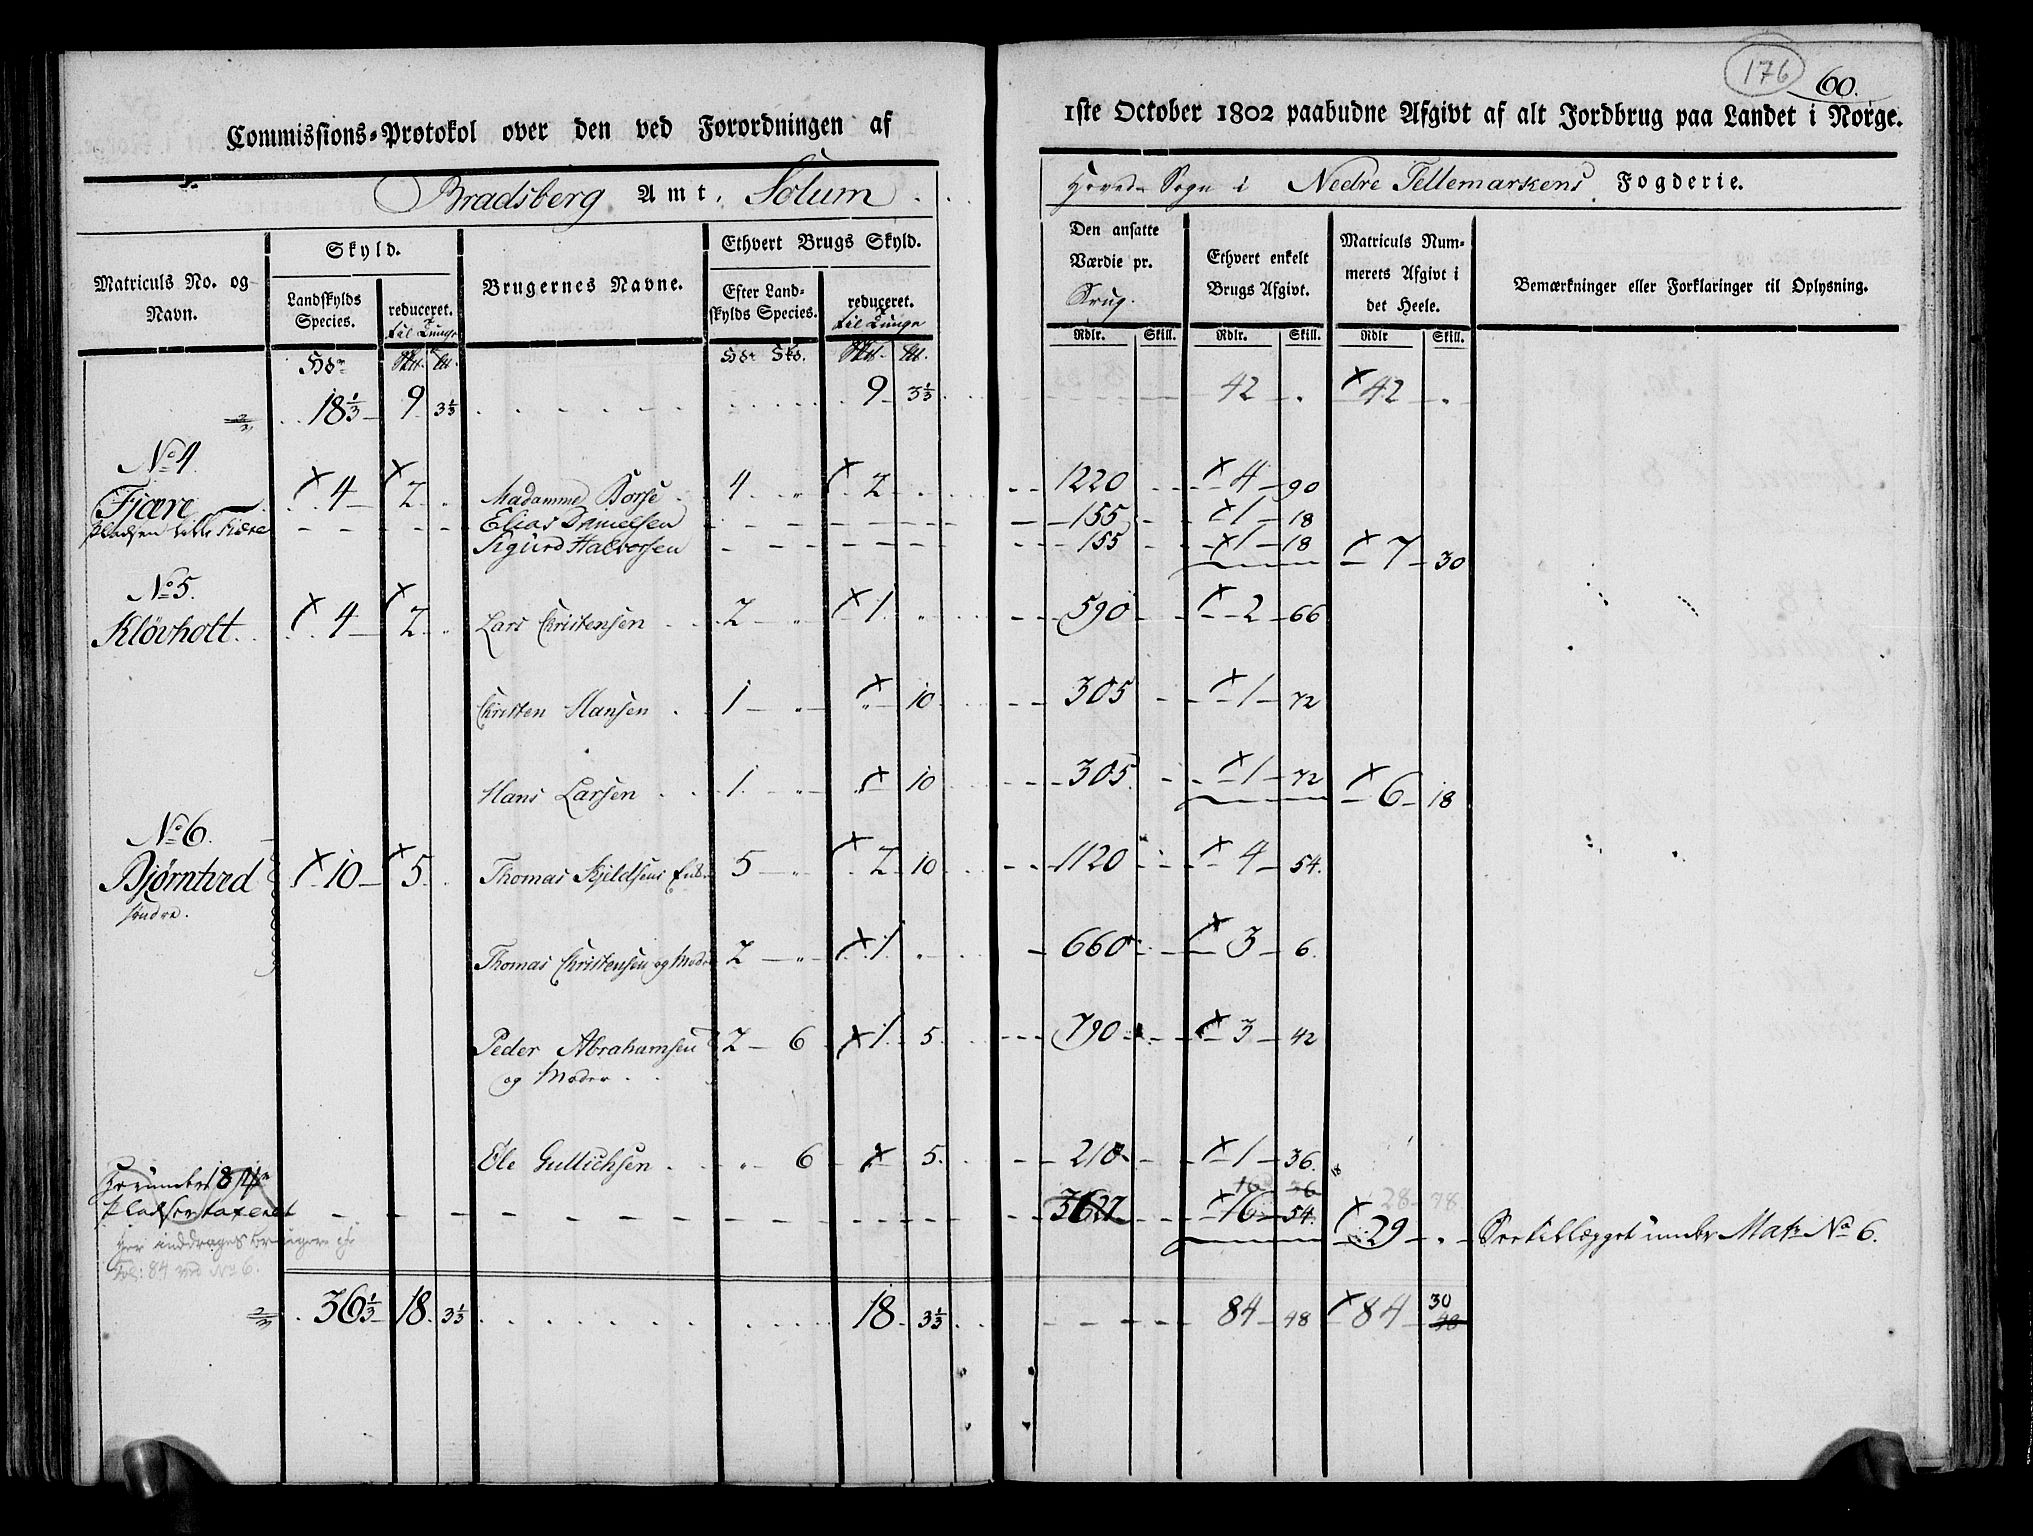 176
60.
Commissions-Protokol over den ved Forordningen af 1ste October 1802 paabudne Afgivt af alt Jordbrug paa Landet i Norge.
Bradsberg Amt, Solum Hoved-Sogn i Nedre Tellemarkens Fogderie.
Matriculs No. og Navn.
Skyld.
Landskylds Species.
reduceret. til Tunge
Brugernes Navne.
Ethvert Brugs Skyld.
Efter Landskylds Species.
reduceret. til Tunge
Den ansatte Værdie pr. Brug.
Ethvert enkelt Brugs Afgivt.
Matriculs Nummerets Afgivt i det Heele.
Bemærkninger eller Forklaringer til Oplysning.
Rdlr. Skill. Rdlr. Skill. Rdlr Skill.
18 1/3 9 3 1/3 9 3 1/3 42 " × 42 "
No 4.
Fjære × 4 × 2 " Madamme Borse 4 " × 2 1220 × 4 90
Pladsen lille Fiære Elias Danielsen 155 × 1 18
Sigurd Halvorsen 155 × 1 18 × 7 30
No 5.
Klövholt × 4 × 2 " Lars Christensen 2 " × 1 " 590 × 2 66
Christen Hansen 1 " × 10 305 × 1 72
Hans Larsen 1 " × 10 305 × 1 72 × 6 18
No 6.
Bjørntved × 10 × 5 Thomas Kjeldsens 5 " × 2 10 1120 × 4 54
søndre.
Thomas Christensen og Moder 2 " × 1 " 660 × 3 6
Peder Abrahamsen 2 6 × 1 5 790 × 3 42
og Moder
Ole Gullichsen " 6 × 5 210 × 1 36
Herunder 18
Pladser taxeret 3627 × 16 54 28 78 × 29 " Seetillægget under Matr No 6.
Her inddrages brugere
fol: 84 ved No 6.
36 1/3 18 3 1/3 18 3 1/3 84 48 × 84 30 48